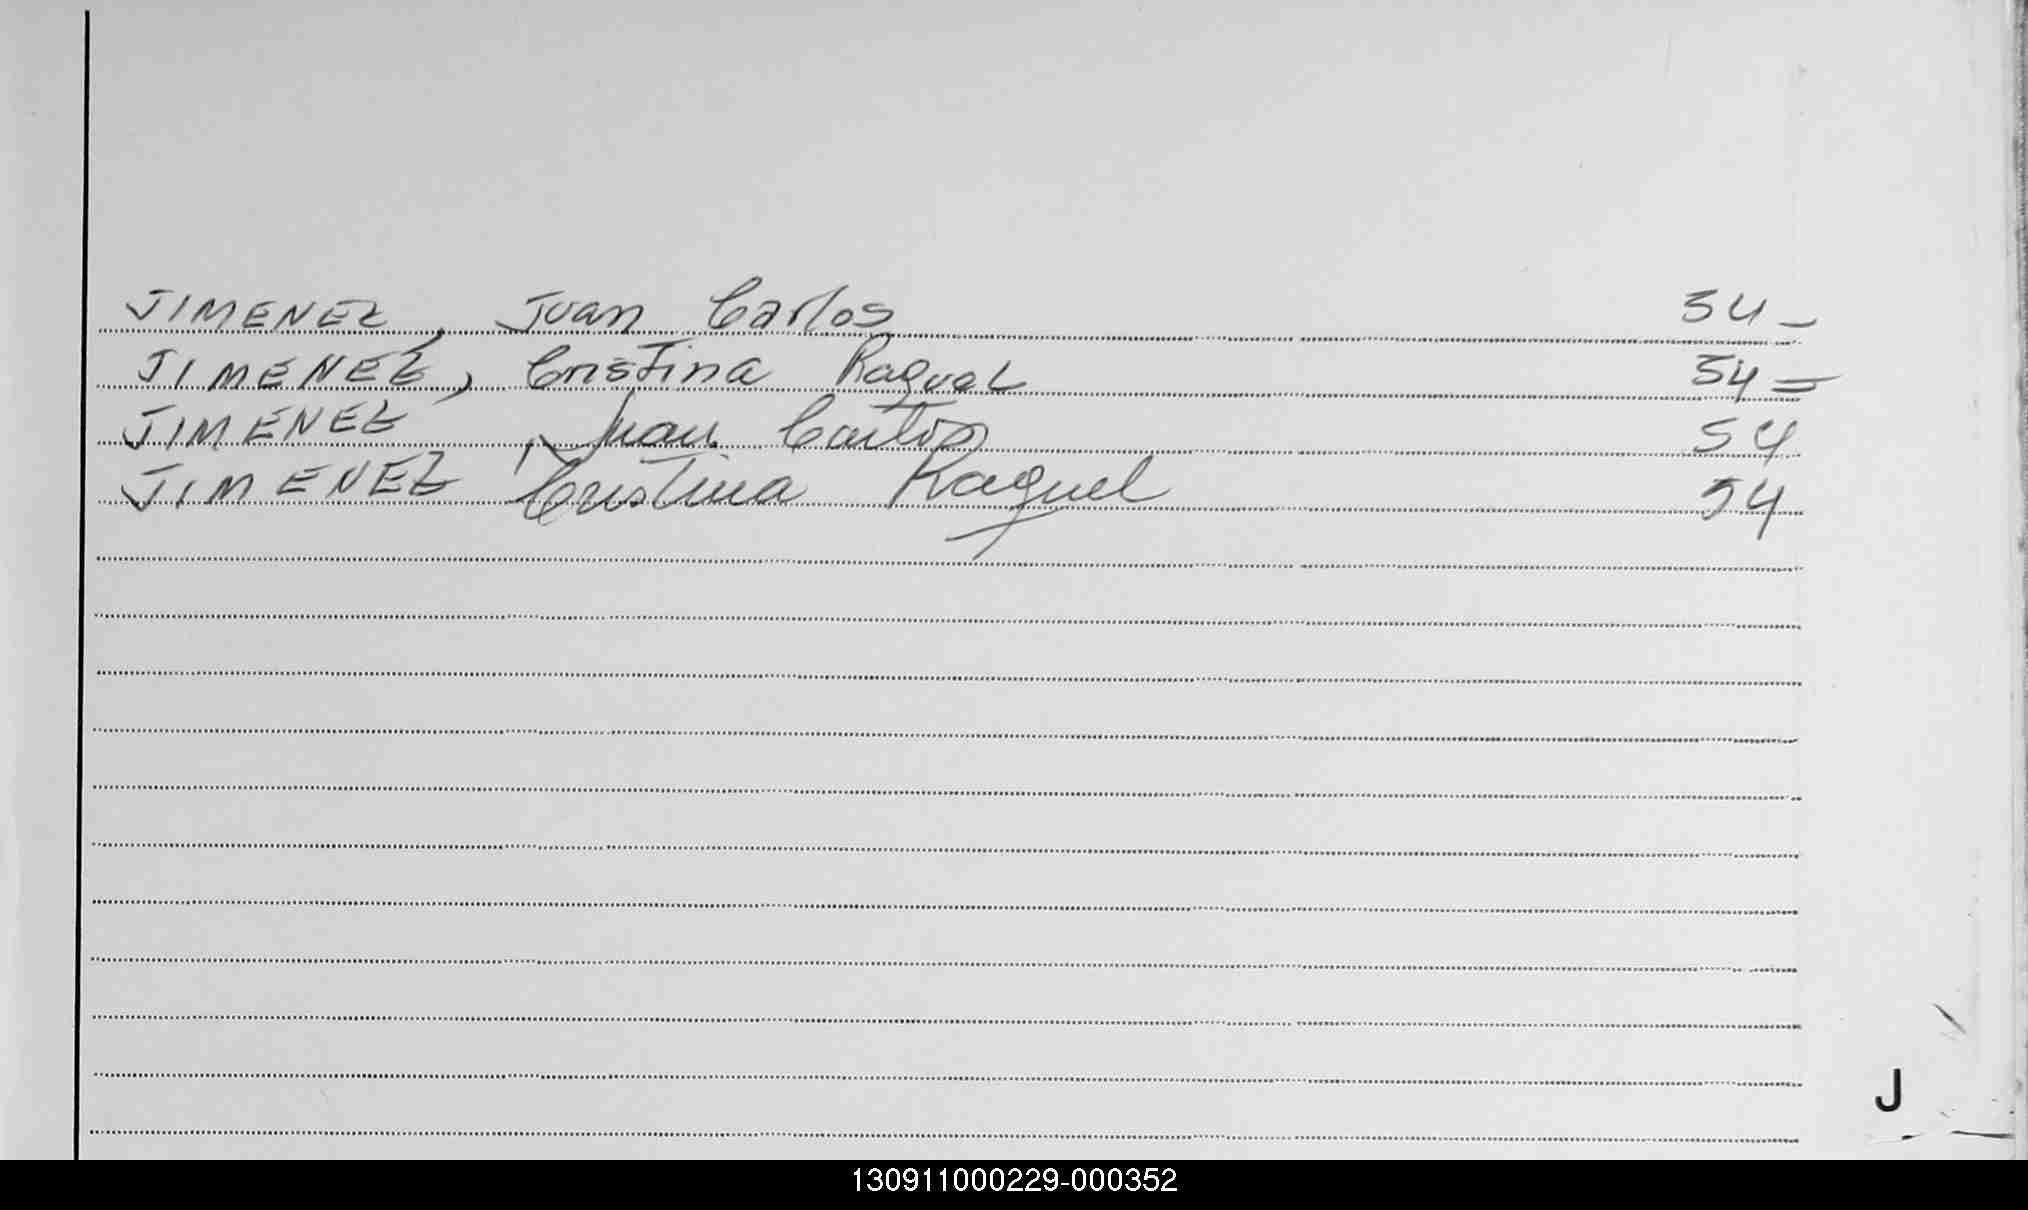 JIMENEZ, Juan Carlos 54 -
JIMENEZ, Cristina Raquel 54 =
JIMENEZ, Juan Carlos 54
JIMENEZ Cristina Raquel 54
J
130911000229-000352